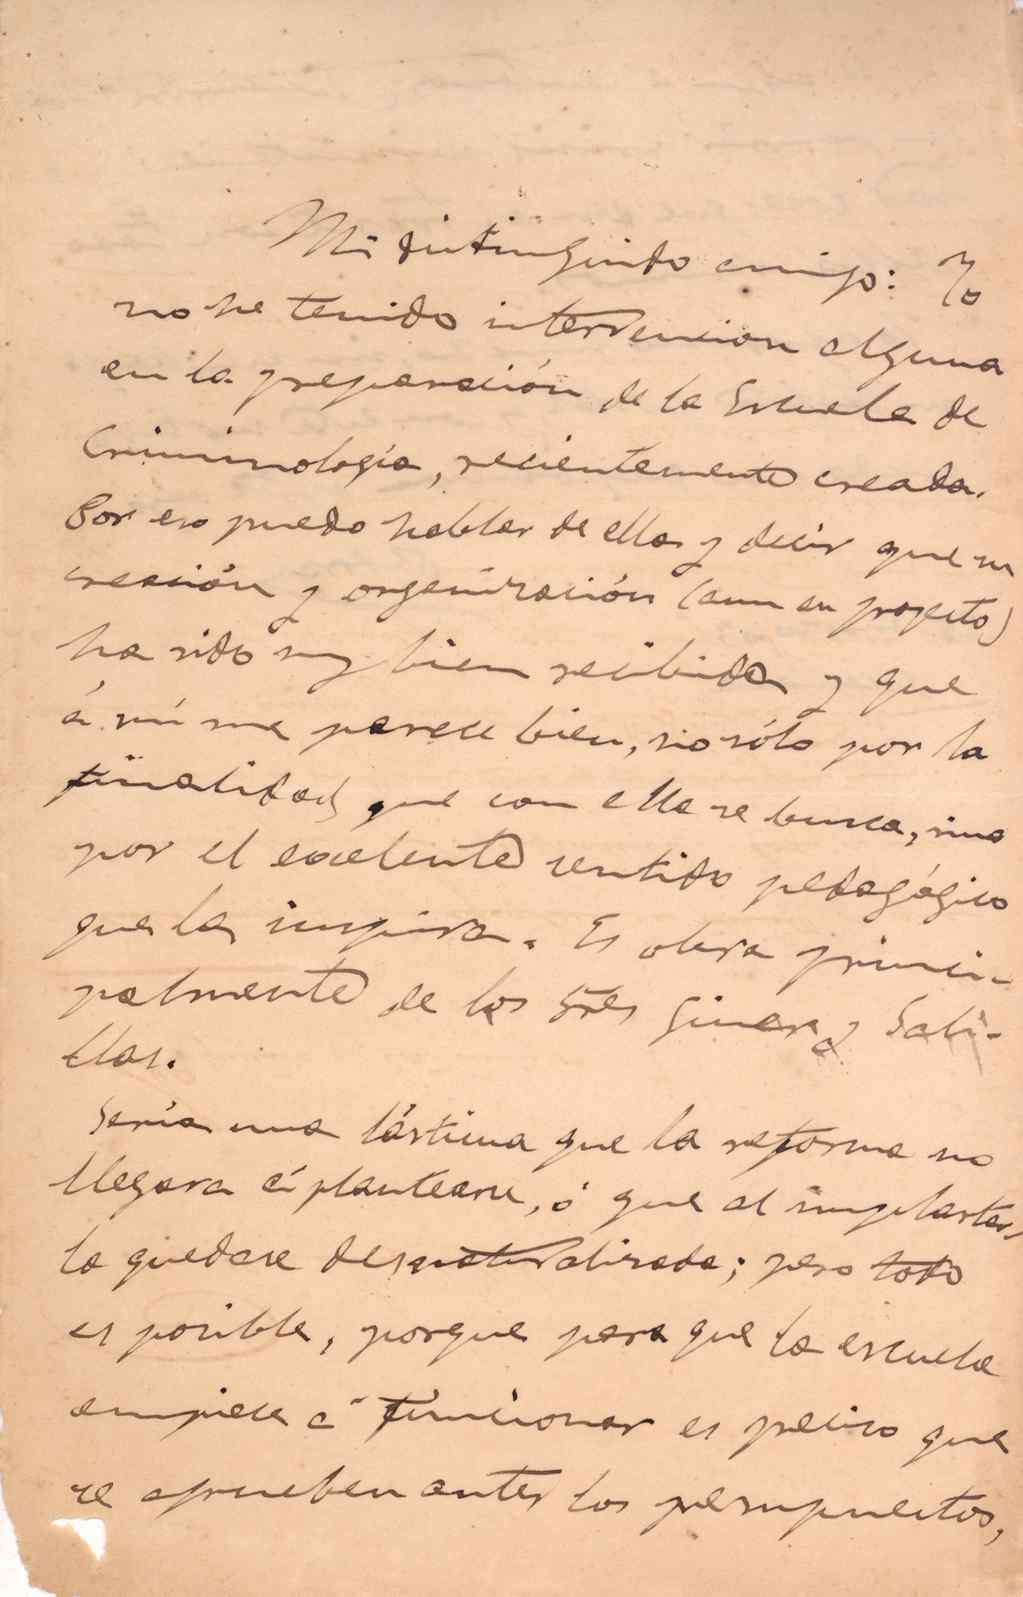 Mi distinguido amigo: Yo
no he tenido intervencion alguna
en la preparación de la Escuela de
Criminología, recientemente creada.
Por eso puedo hablar de ella y decir que su
creación y organización (aun en proyecto)
ha sido muy bien recibida y que
á mi me parece bien, no sólo por la
finalidad que con ella se busca, sino
por el excelente sentido pedagógico
que la inspira. Es obra princi-
palmente de los Sres Giner y Sali-
llas.
Sería una lástima que la reforma no
llegara á plantearse, ó que al implantar
la quedase desnaturalizada; pero todo
es posible, porque para que la escuela
empiece á funcionar es preciso que
se aprueben antes los presupuestos,